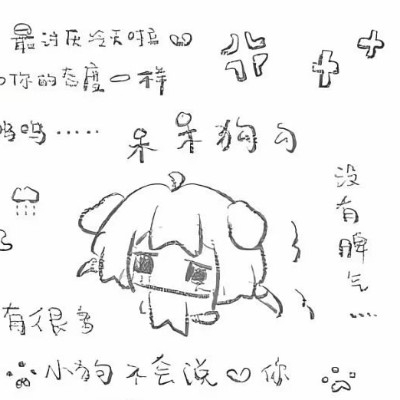 最讨厌冷天时
你的态度一样
呜呜……
呆呆狗勾
没有脾气……
有很多
小狗不会说♡你